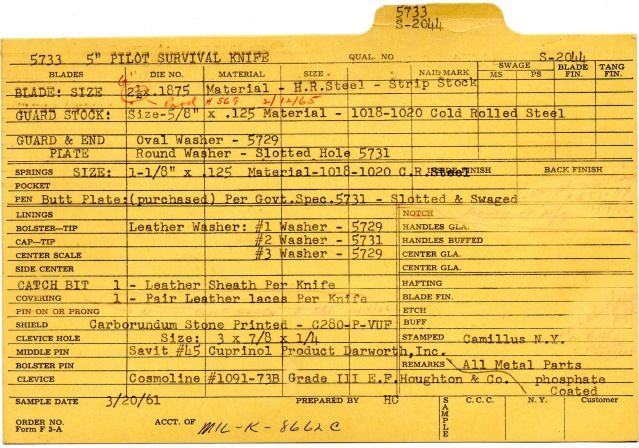 5733
S-2044
5733 5" PILOT SURVIVAL KNIFE QUAL. NO S-2044
BLADES DIE NO. MATERIAL SIZE NAID MARK SWAGE MS PS BLADE FIN. TANG FIN.
BLADE: SIZE 2½x.1875 Material - H.R.Steel - Strip Stock
6"
Pard #569 2/12/65
GUARD STOCK: Size-5/8" x .125 Material - 1018-1020 Cold Rolled Steel
GUARD & END Oval Washer - 5729
PLATE Round Washer - Slotted Hole 5731
SPRINGS SIZE: 1-1/8" x .125 Material-1018-1020 C.R.Steel FINISH BACK FINISH
POCKET
PEN Butt Plate:(purchased) Per Govt.Spec.5731 - Slotted & Swaged
LININGS NOTCH
BOLSTER—TIP Leather Washer: #1 Washer - 5729 HANDLES GLA.
CAP—TIP #2 Washer - 5731 HANDLES BUFFED
CENTER SCALE #3 Washer - 5729 CENTER GLA.
SIDE CENTER CENTER GLA.
CATCH BIT 1 - Leather Sheath Per Knife HAFTING
COVERING 1 - Pair Leather laces Per Knife BLADE FIN.
PIN ON OR PRONG ETCH
SHIELD Carborundum Stone Printed - C280-P-VUF BUFF
CLEVICE HOLE Size: 3 x 7/8 x 1/4 STAMPED Camillus N.Y.
MIDDLE PIN Savit #45 Cuprinol Product Darworth,Inc.
BOLSTER PIN REMARKS All Metal Parts
CLEVICE Cosmoline #1091-73B Grade III E.F.Houghton & Co. phosphate
Coated
SAMPLE DATE 3/20/61 PREPARED BY HC SAMPLE C.C.C. N.Y. Customer
ORDER NO. ACCT. OF MIL-K-8662C
Form F 3-A